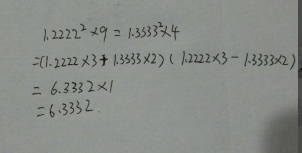 1.2222²×9=1.3333²×4
=(1.2222×3+1.3333×2)(1.2222×3-1.3333×2)
=6.3332×1
=6.3332.